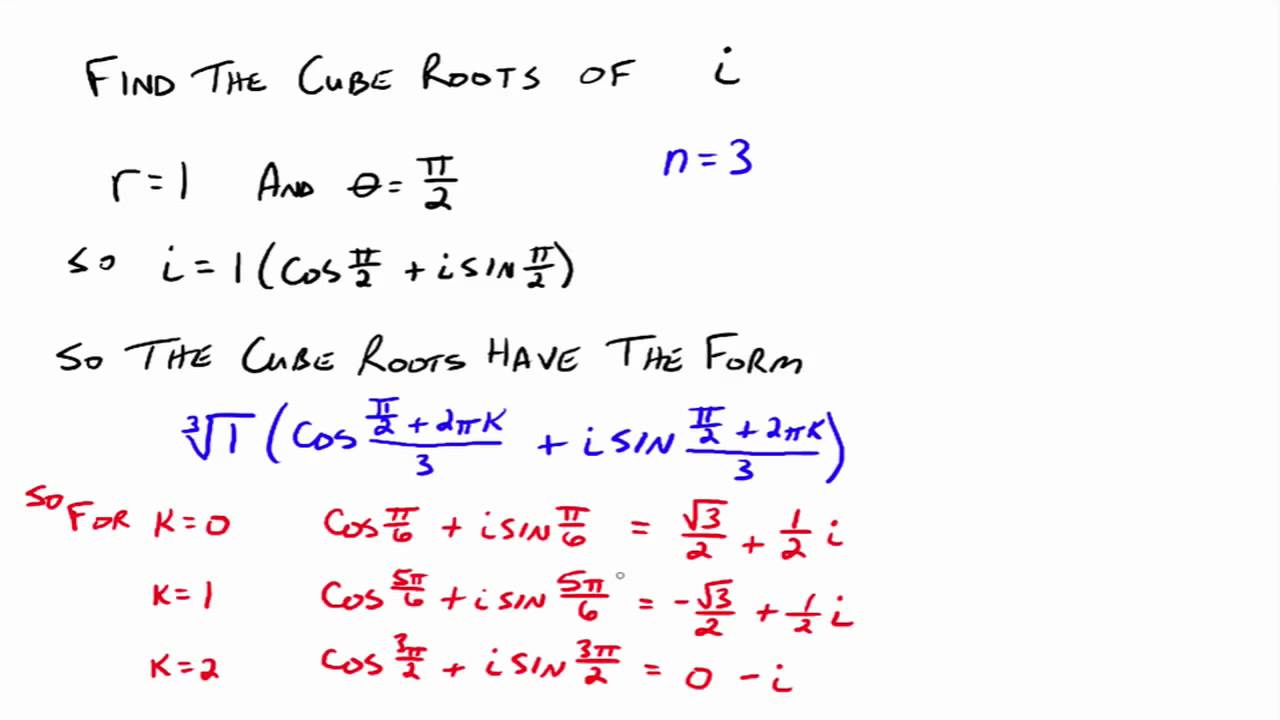 FIND THE CUBE ROOTS OF i
r = 1 AND θ = π/2 n = 3
SO i = 1 (cos π/2 + i sin π/2)
SO THE CUBE ROOTS HAVE THE FORM
∛1 (cos (π/2 + 2πK)/3 + i sin (π/2 + 2πK)/3)
SO FOR K = 0 cos π/6 + i sin π/6 = √3/2 + 1/2 i
K = 1 cos 5π/6 + i sin 5π/6 = -√3/2 + 1/2 i
K = 2 cos 3π/2 + i sin 3π/2 = 0 - i